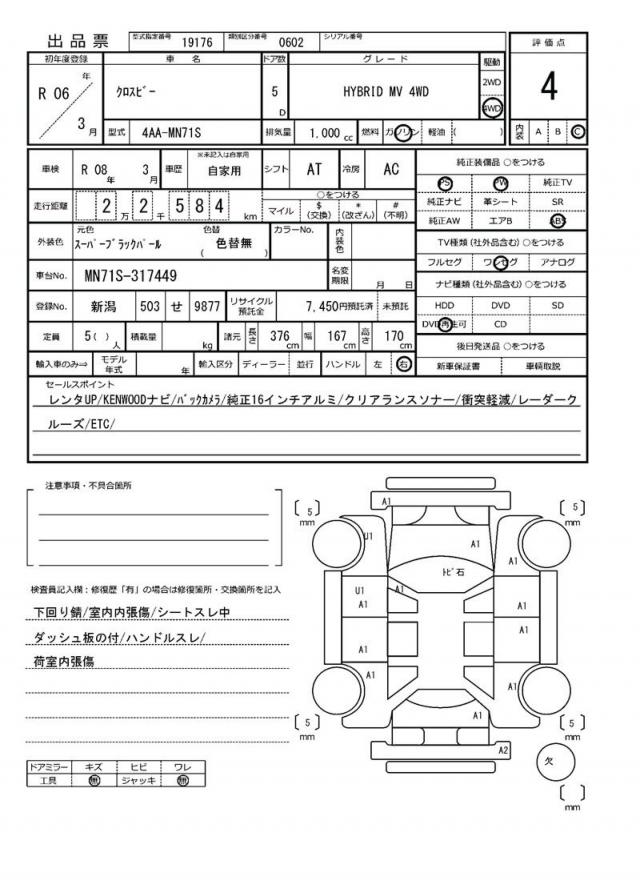 出品票 型式指定番号 19176 類別区分番号 0602 シリアル番号
評価点
初年度登録 車名 ドア数 グレード 駆動
R 06 年 3 月 クロスビー 5 D HYBRID MV 4WD 2WD 4WD
4
型式 4AA-MN71S 排気量 1.000 cc 燃料 ガソリン 軽油 ( )
内装 A B C
車検 R 08 年 3 月 車歴 ※未記入は自家用 自家用 シフト AT 冷房 AC
純正装備品 ○をつける
PS PW 純正TV
純正ナビ 革シート SR
純正AW エアB ABS
走行距離 2 万 2 千 5 8 4 km
○をつける
マイル $ (交換) * (改ざん) # (不明)
外装色 元色 スーパーブラックパール 色替 ( 色替無 ) カラーNo. 内装色
TV種類 (社外品含む) ○をつける
フルセグ ワンセグ アナログ
車台No. MN71S-317449 名変期限 月 日
ナビ種類 (社外品含む) ○をつける
HDD DVD SD
DVD再生可 CD
登録No. 新潟 503 せ 9877 リサイクル預託金 7,450円預託済 未預託
定員 5( ) 人 積載量 kg 諸元 長さ 376 cm 幅 167 cm 高さ 170 cm
後日発送品 ○をつける
新車保証書 車輌取説
輸入車のみ⇒ モデル年式 年 輸入区分 ディーラー 並行 ハンドル 左 右
セールスポイント
レンタUP/KENWOODナビ/バックカメラ/純正16インチアルミ/クリアランスソナー/衝突軽減/レーダーク
ルーズ/ETC/
注意事項・不具合箇所
検査員記入欄：修復歴「有」の場合は修復箇所・交換箇所を記入
下回り錆/室内内張傷/シートスレ中
ダッシュ板の付/ハンドルスレ/
荷室内張傷
ドアミラー キズ ヒビ ワレ
工具 無 ジャッキ 無
A1
[ 5 ] mm
[ 5 ] mm
U1
A1
A1
トビ石
U1
A1
A1
A1
A1
A1
A1
A1
A1
A1
[ 5 ] mm
[ 5 ] mm
A2
欠
[ ] mm